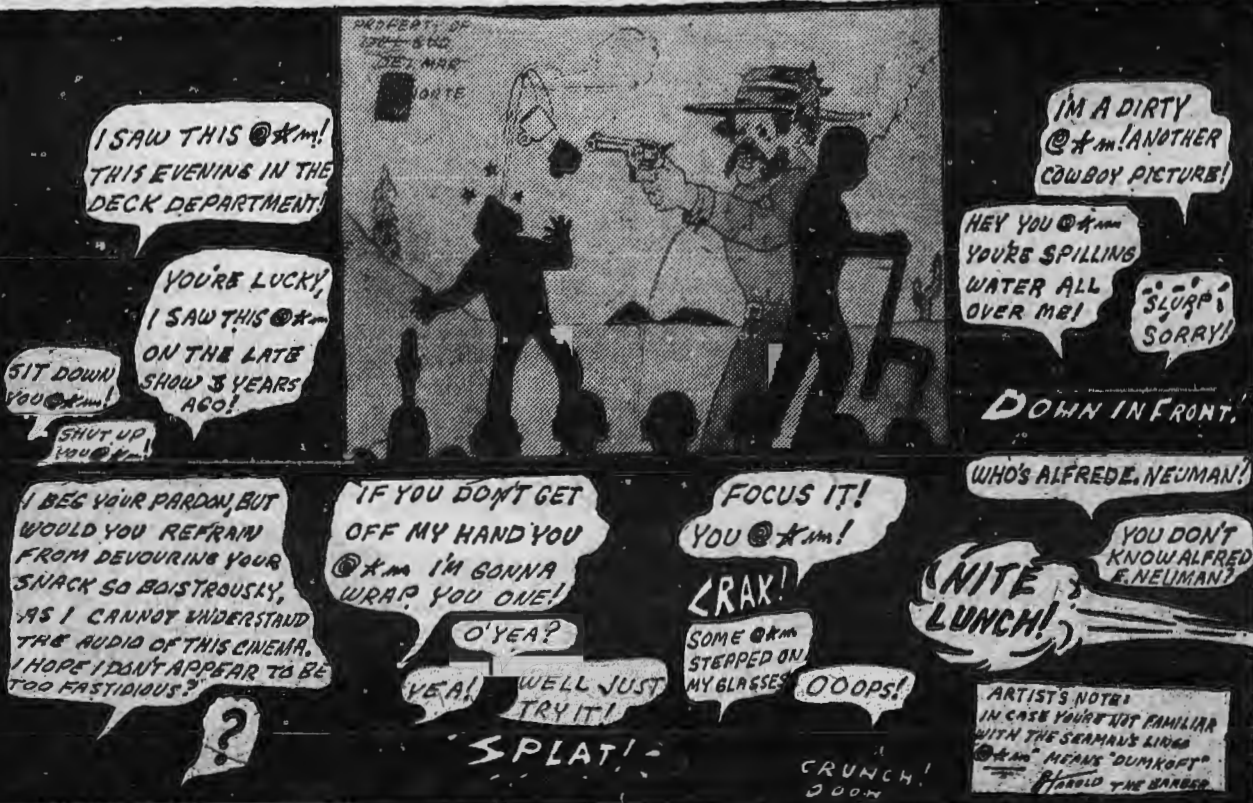 PROPERTY OF
DEL MAR
NORTE
I SAW THIS @*m!
THIS EVENING IN THE
DECK DEPARTMENT!
YOU'RE LUCKY,
I SAW THIS @*m
ON THE LATE
SHOW 3 YEARS
AGO!
SIT DOWN
YOU @*m!
SHUT UP
YOU @*m!
I'M A DIRTY
@*m! ANOTHER
COWBOY PICTURE!
HEY YOU @*m
YOU'RE SPILLING
WATER ALL
OVER ME!
SLURP!
SORRY!
DOWN IN FRONT!
I BEG YOUR PARDON, BUT
WOULD YOU REFRAIN
FROM DEVOURING YOUR
SNACK SO BOISTROUSLY,
AS I CANNOT UNDERSTAND
THE AUDIO OF THIS CINEMA.
I HOPE I DON'T APPEAR TO BE
TOO FASTIDIOUS?
?
IF YOU DON'T GET
OFF MY HAND YOU
@*m I'M GONNA
WRAP YOU ONE!
O'YEA?
YEA!
WELL JUST
TRY IT!
SPLAT!
FOCUS IT!
YOU @*m!
CRAX!
SOME @*m
STEPPED ON
MY GLASSES
OOOPS!
CRUNCH!
WHO'S ALFRED E. NEUMAN?
YOU DON'T
KNOW ALFRED
E. NEUMAN?
NITE
LUNCH!
ARTIST'S NOTE:
IN CASE YOU'RE NOT FAMILIAR
WITH THE SEAMAN'S LINGO
"@*m" MEANS "DUMKOFT"
HAROLD THE BARBER